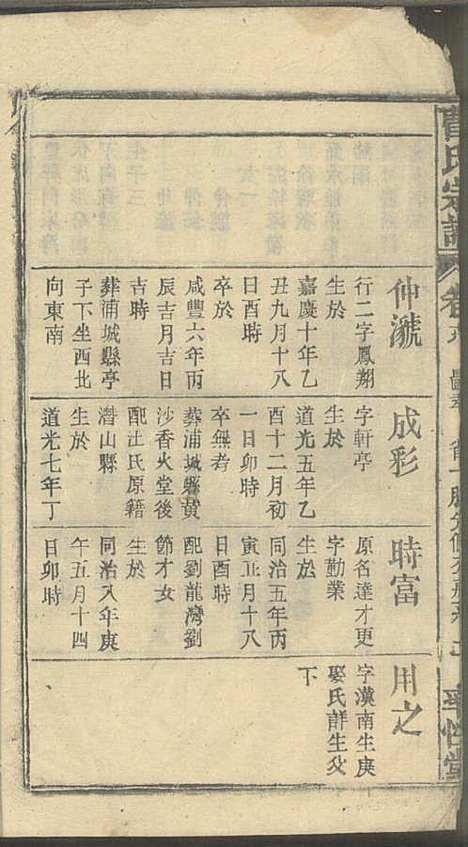 曹氏宗譜
卷
率性堂
仲漋
行二字鳳翔
生於
嘉慶十年乙
丑九月十八
日酉時
卒於
咸豐六年丙
辰吉月吉日
吉時
葬浦城縣亭
子下坐西北
向東南
成彩
字軒亭
生於
道光五年乙
酉十二月初
一日卯時
卒無考
葬浦城縣黃
沙香火堂後
配汪氏原籍
潛山縣
生於
道光七年丁
時富
原名達才更
字勤業
生於
同治五年丙
寅正月十八
日酉時
配劉龍灣劉
節才女
生於
同治八年庚
午五月十四
日卯時
用之
字漢南生庚
娶氏詳生父
下